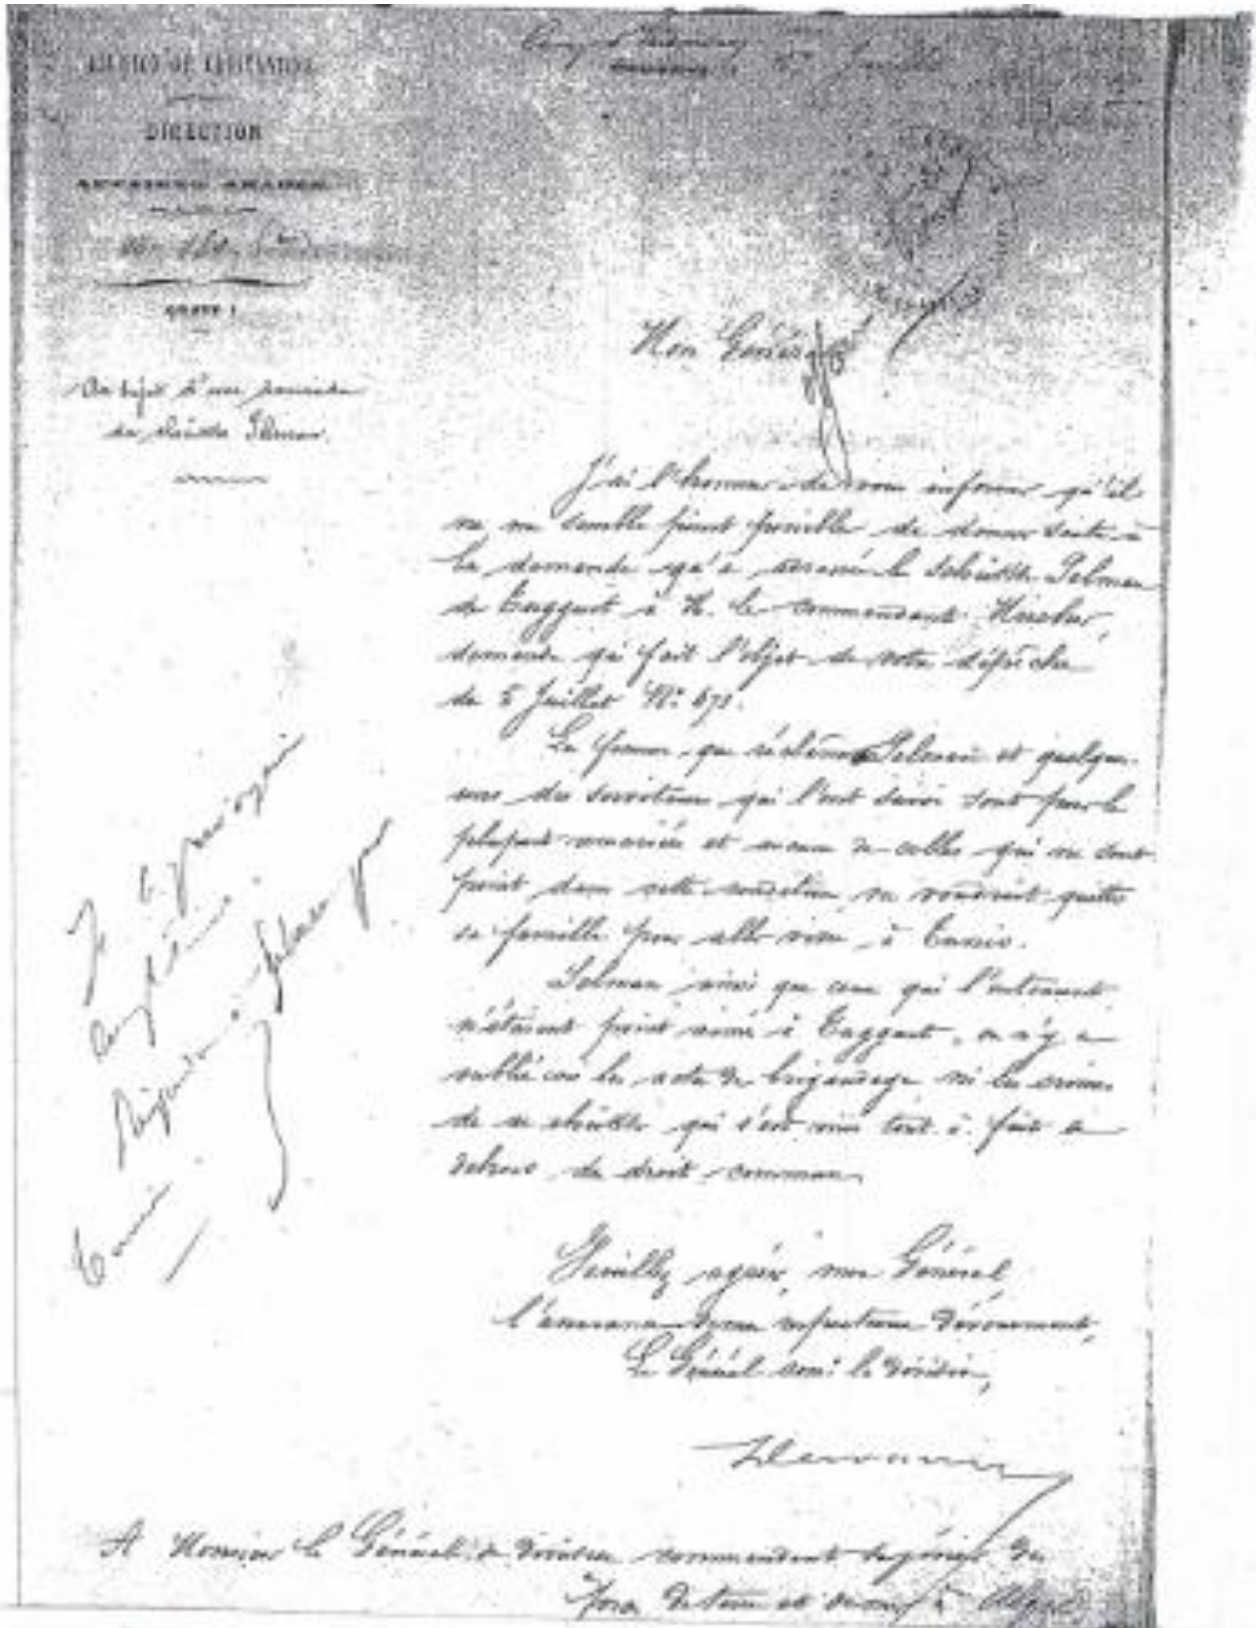 DIVISION DE CONSTANTINE
DIRECTION
AFFAIRES ARABES
Juillet
Au sujet d'une demande
du cheikh Selman.
Mon Général
J'ai l'honneur de vous informer qu'il
ne me semble point possible de donner suite à
la demande qu'a adressée le cheikh Selman
de Tuggurt à M. le commandant
demande qui fait l'objet de votre dépêche
du 5 Juillet N°
Les femmes que réclame Selman et quelques
uns des serviteurs qui l'ont suivi sont pour la
plupart remariées et aucune de celles qui ne sont
point dans cette condition ne voudrait quitter
sa famille pour aller vivre à Tunis.
Selman ainsi que ceux qui l'entouraient
n'étaient point aimés à Tuggurt, on n'y a
oublié ni les actes de brigandage ni les crimes
de ce cheikh qui s'est mis tout à fait en
dehors du droit commun.
Veuillez agréer, mon Général,
l'assurance de mon respectueux dévouement,
Le Général comt la Division,
A Monsieur le Général de Division commandant supérieur des
forces de terre et de mer à Alger
Selman
Tunis